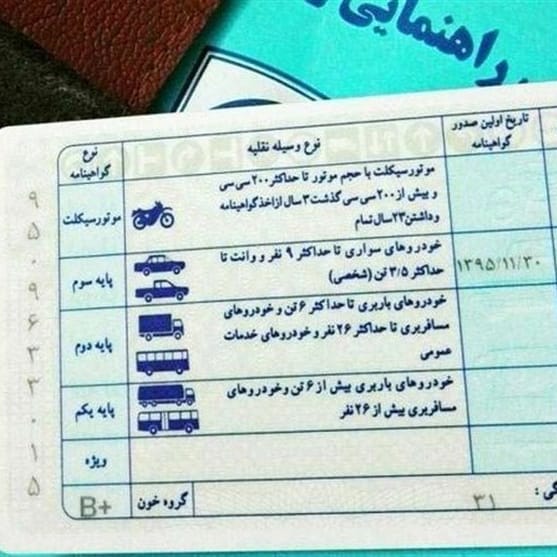 راهنمایی
تاریخ اولین صدور گواهینامه
نوع وسیله نقلیه
نوع گواهینامه
موتورسیکلت با حجم موتور تا حداکثر ۲۰۰ سی سی
و بیش از ۲۰۰ سی سی گذشت ۳ سال از اخذ گواهینامه
و داشتن ۲۳ سال تمام
موتورسیکلت
خودروهای سواری تا حداکثر ۹ نفر و وانت تا
حداکثر ۳/۵ تن (شخصی)
پایه سوم
۱۳۹۵/۱۱/۳۰
خودروهای باربری تا حداکثر ۶ تن و خودروهای
مسافربری تا حداکثر ۲۶ نفر و خودروهای خدمات
عمومی
پایه دوم
خودروهای باربری بیش از ۶ تن و خودروهای
مسافربری بیش از ۲۶ نفر
پایه یکم
ویژه
۳۱
گروه خون
B+
۹۵۰۹۶۳۳۰۱۵